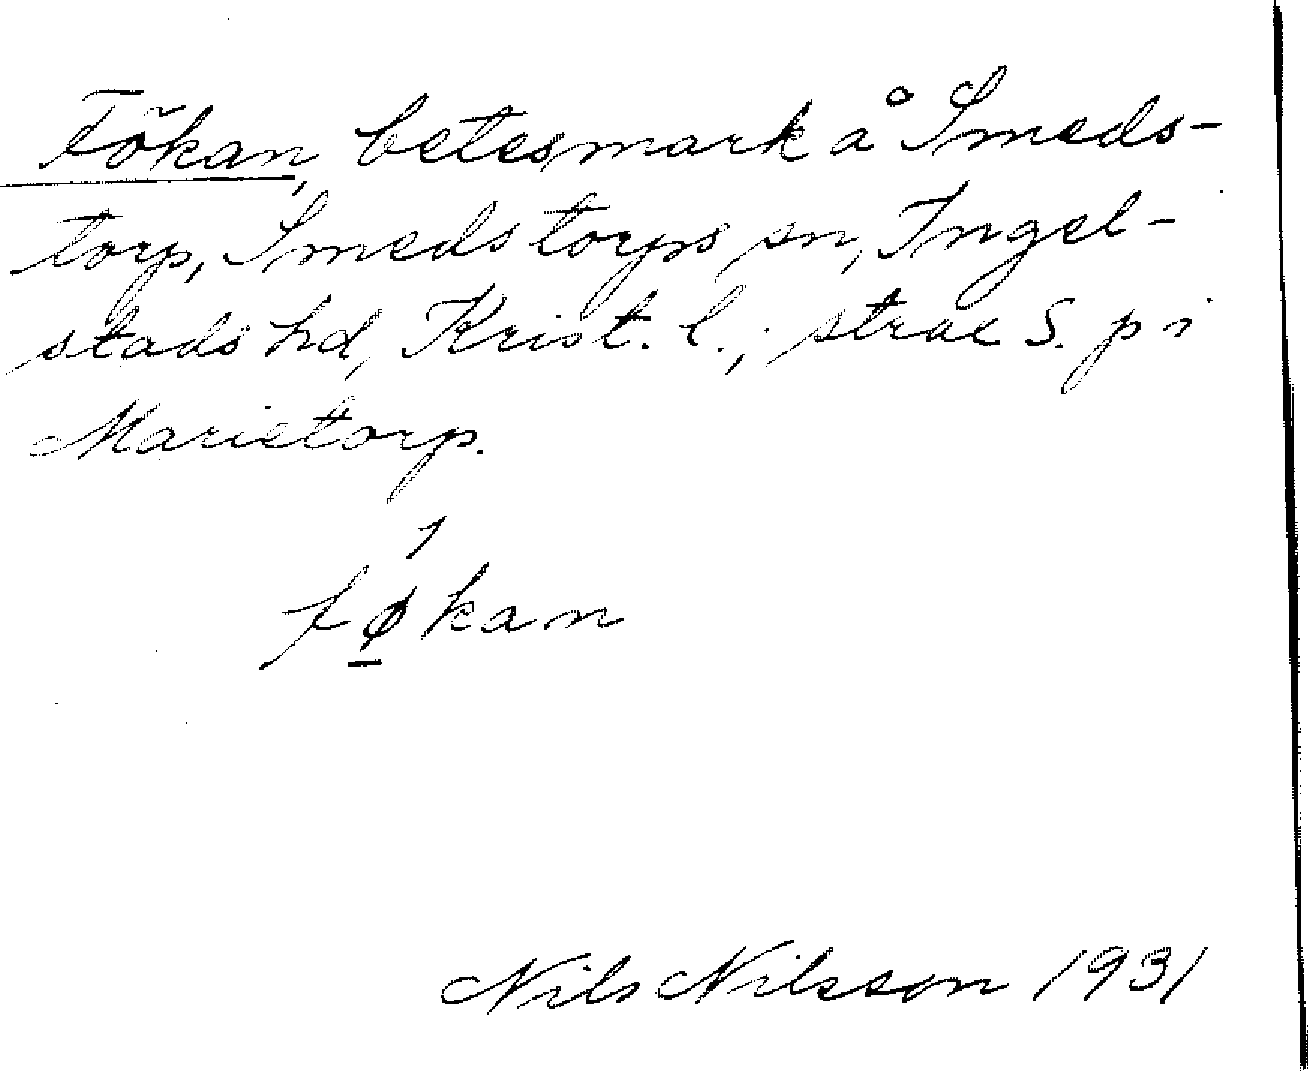 Fökan, betesmark å Smeds-
torp, Smedstorps sn, Ingel-
stads hd, Krist. l.; strax S. p i
Marietorp.
fǿ̱kan
Nils Nilsson 1931